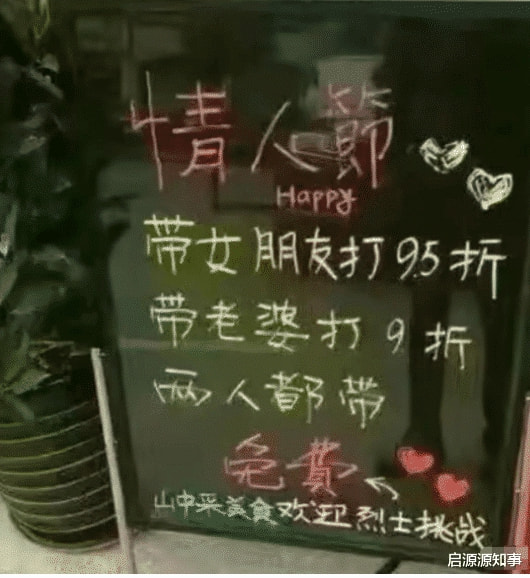 情人節
Happy
带女朋友打95折
带老婆打9折
两人都带
免費
山中采美食欢迎烈士挑战
启源源知事